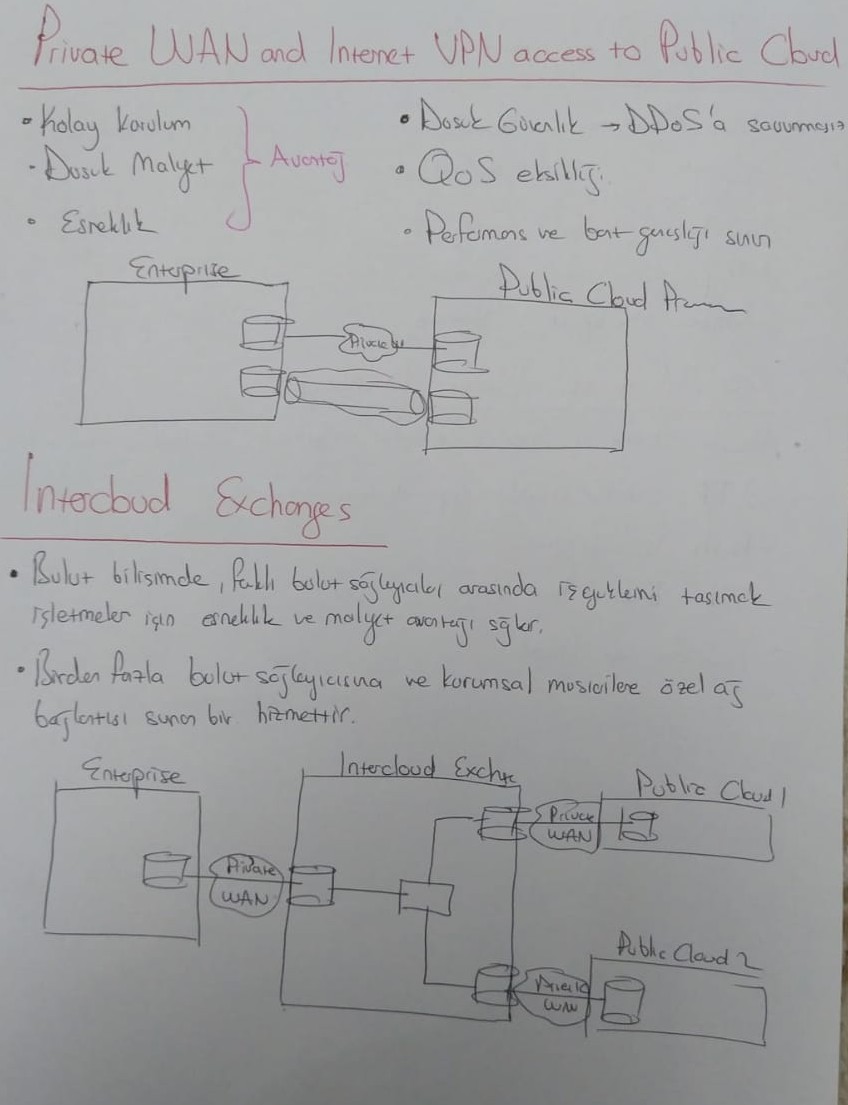 Private WAN and Internet VPN access to Public Cloud
• Kolay Kurulum
• Düşük Maliyet
• Esneklik
Avantaj
• Düşük Güvenlik → DDoS'a savunmasız
• QoS eksikliği
• Performans ve bant genişliği sınırı
Enterprise
Public Cloud
Private
Intercloud Exchanges
• Bulut bilişimde, farklı bulut sağlayıcıları arasında iş yüklerini taşımak
işletmeler için esneklik ve maliyet avantajı sağlar.
• Birden fazla bulut sağlayıcısına ve kurumsal müşterilere özel ağ
bağlantısı sunan bir hizmettir.
Enterprise
Private
WAN
Intercloud Exchge
Public Cloud 1
Private
WAN
Public Cloud 2
Private
WAN